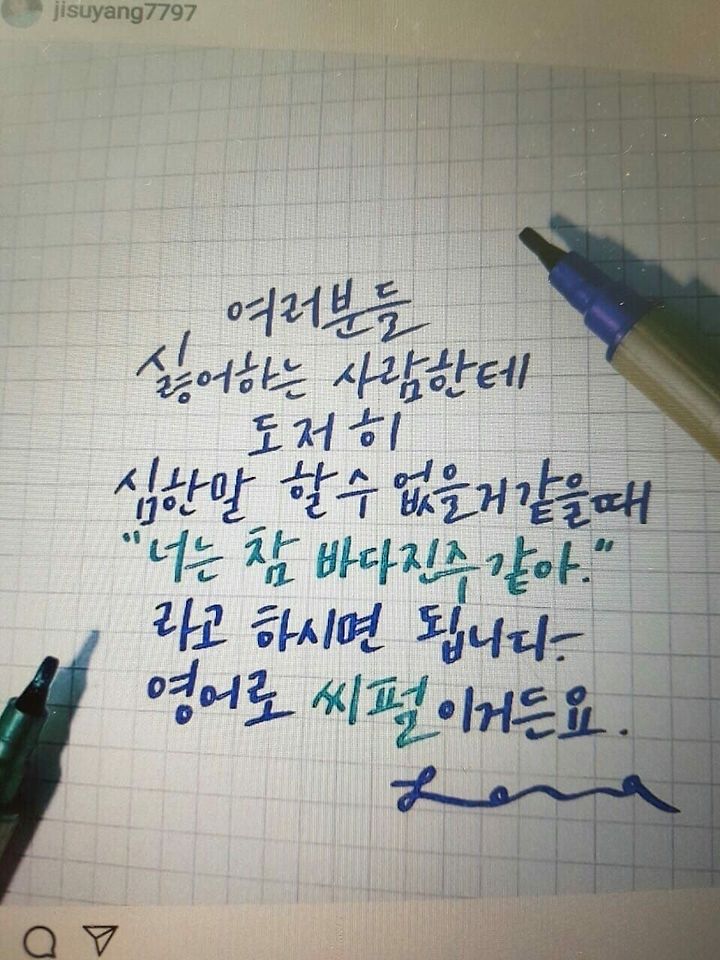 jisuyang7797
여러분들
싫어하는 사람한테
도저히
심한말 할수 없을거같을때
"너는 참 바다진주 같아."
라고 하시면 됩니다-
영어로 씨펄이거든요.
Lena